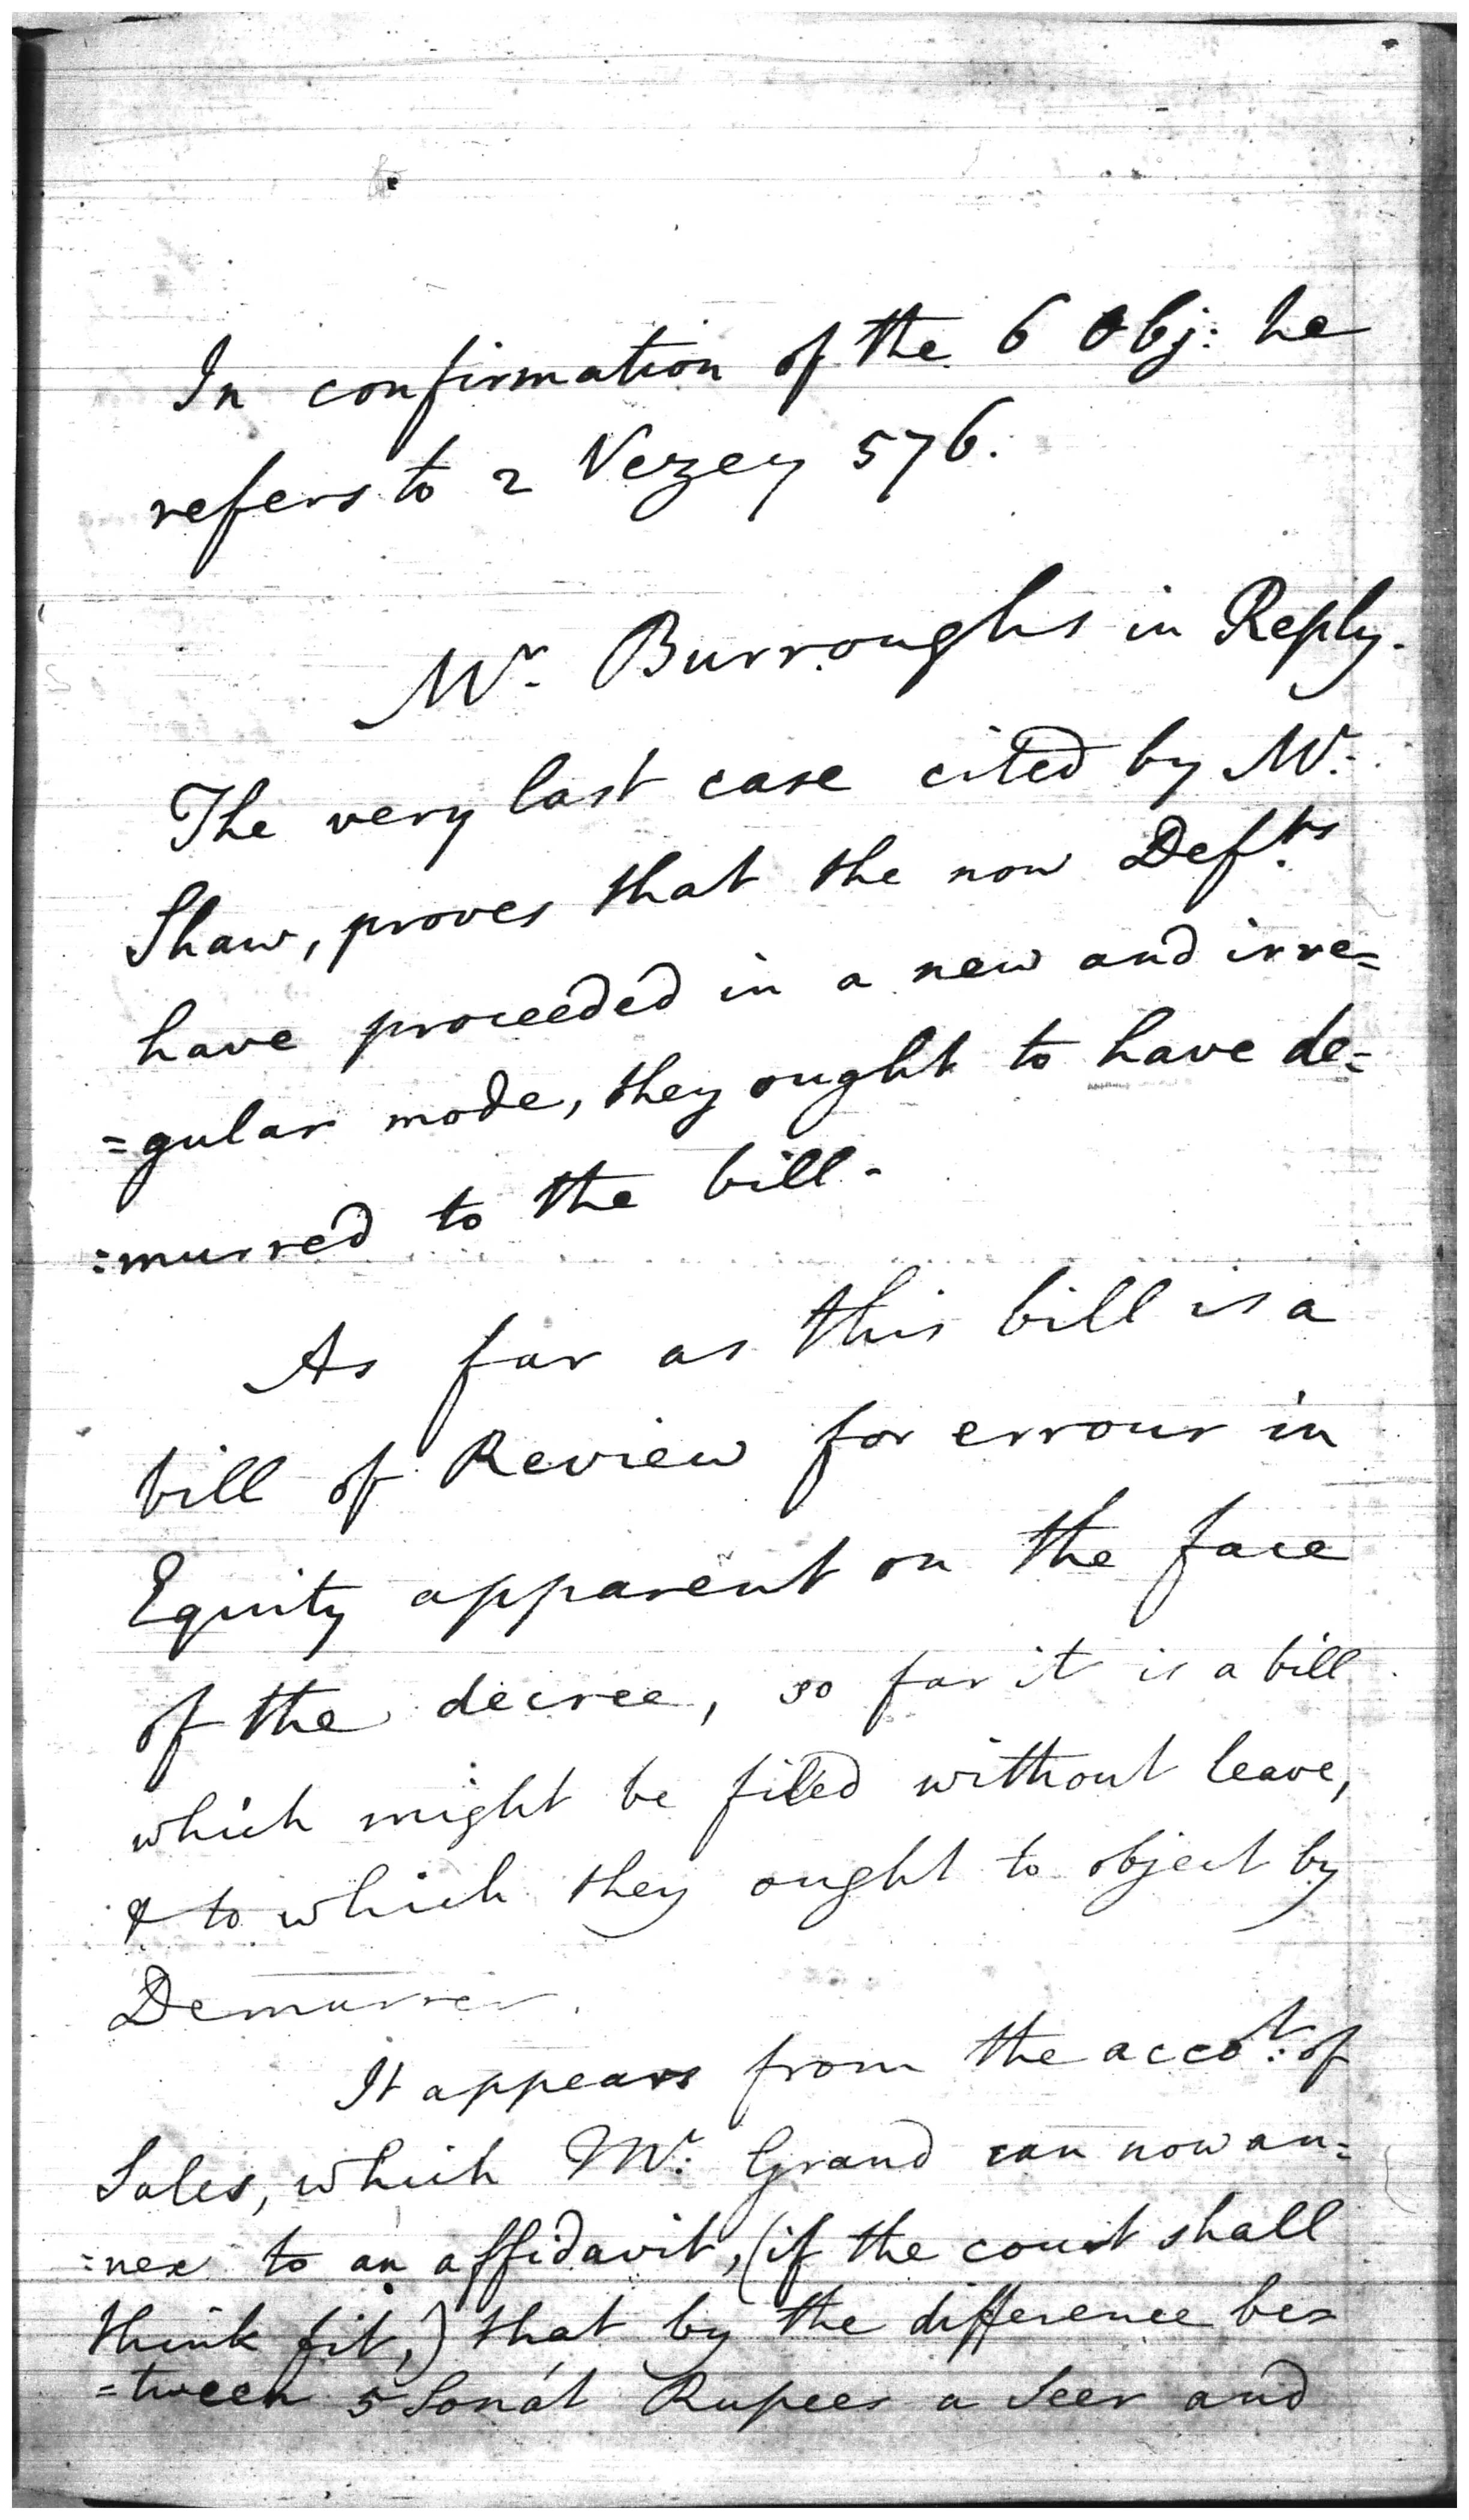 In confirmation of the 6 Obj: he
refers to 2 Vezey 576.
Mr. Burroughs in Reply.
The very last case cited by Mr.
Shaw, proves that the now Defts.
have proceeded in a new and irre=
=gular mode, they ought to have de=
:murred to the bill.
As far as this bill is a
bill of Review for errour in
Equity apparent on the face
of the decree, so far it is a bill
which might be filed without leave,
& to which they ought to object by
Demurrer.
It appears from the accot. of
Sales, which Mr. Grand can now an=
:nex to an affidavit, (if the court shall
think fit,) that by the difference be=
=tween 5 Sonat Rupees a Seer and